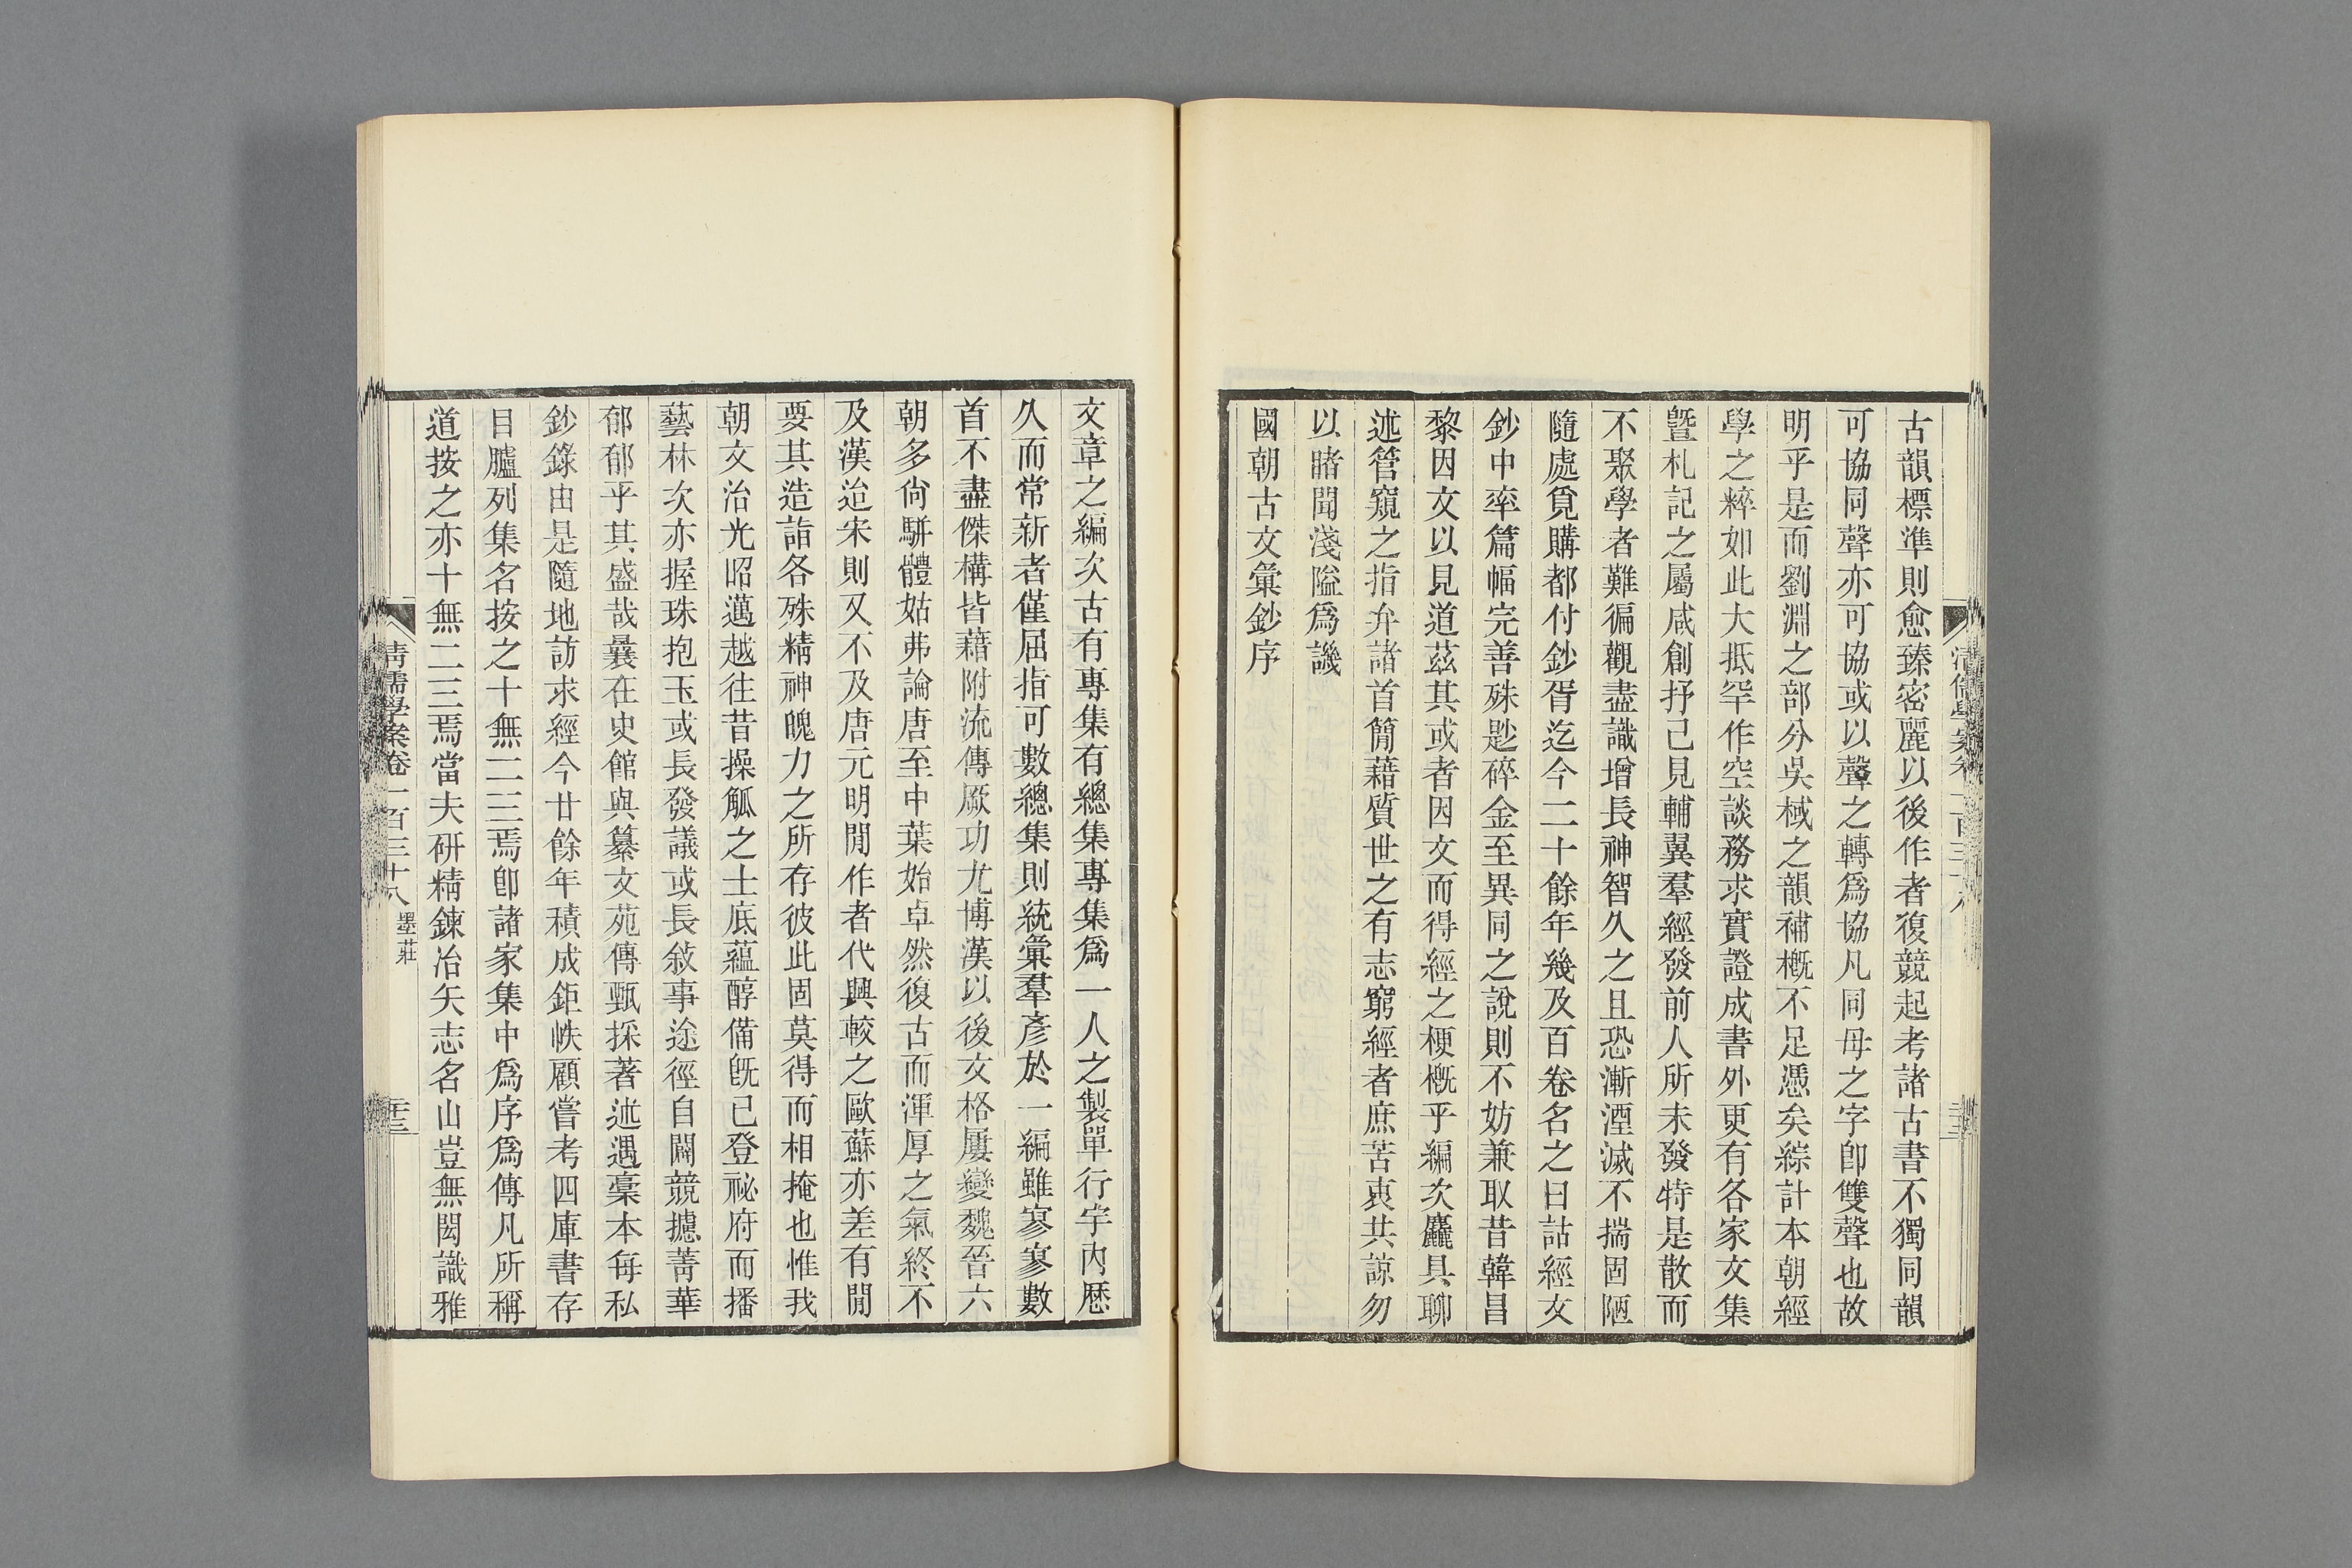 古韻標準則愈臻密麗以後作者復競起考諸古書不獨同韻
可協同聲亦可協或以聲之轉爲協凡同母之字卽雙聲也故
明乎是而劉淵之部分吳棫之韻補槪不足憑矣綜計本朝經
學之粹如此大抵罕作空談務求實證成書外更有各家文集
曁札記之屬咸創抒己見輔翼羣經發前人所未發特是散而
不聚學者難徧觀盡識增長神智久之且恐漸湮滅不揣固陋
隨處覓購都付鈔胥迄今二十餘年幾及百卷名之曰詁經文
鈔中率篇幅完善殊尠碎金至異同之說則不妨兼取昔韓昌
黎因文以見道茲其或者因文而得經之梗槪乎編次麤具聊
述管窺之指弁諸首簡藉質世之有志窮經者庶苦衷共諒勿
以睹聞淺隘爲譏
國朝古文彙鈔序
清儒學案卷一百三十八
文章之編次古有專集有總集專集爲一人之製單行宇內歷
久而常新者僅屈指可數總集則統彙羣彥於一編雖寥寥數
首不盡傑構皆藉附流傳厥功尤博漢以後文格屢變魏晉六
朝多尙駢體姑弗論唐至中葉始卓然復古而渾厚之氣終不
及漢迨宋則又不及唐元明閒作者代興較之歐蘇亦差有閒
要其造詣各殊精神魄力之所存彼此固莫得而相掩也惟我
朝文治光昭邁越往昔操觚之士底蘊醇備旣已登祕府而播
藝林次亦握珠抱玉或長發議或長敍事途徑自闢競攄菁華
郁郁乎其盛哉曩在史館與纂文苑傳甄採著述遇稾本每私
鈔錄由是隨地訪求經今廿餘年積成鉅帙顧嘗考四庫書存
目臚列集名按之十無二三焉卽諸家集中爲序爲傳凡所稱
道按之亦十無二三焉當夫研精鍊冶矢志名山豈無閎識雅
清儒學案卷一百三十八 墨莊